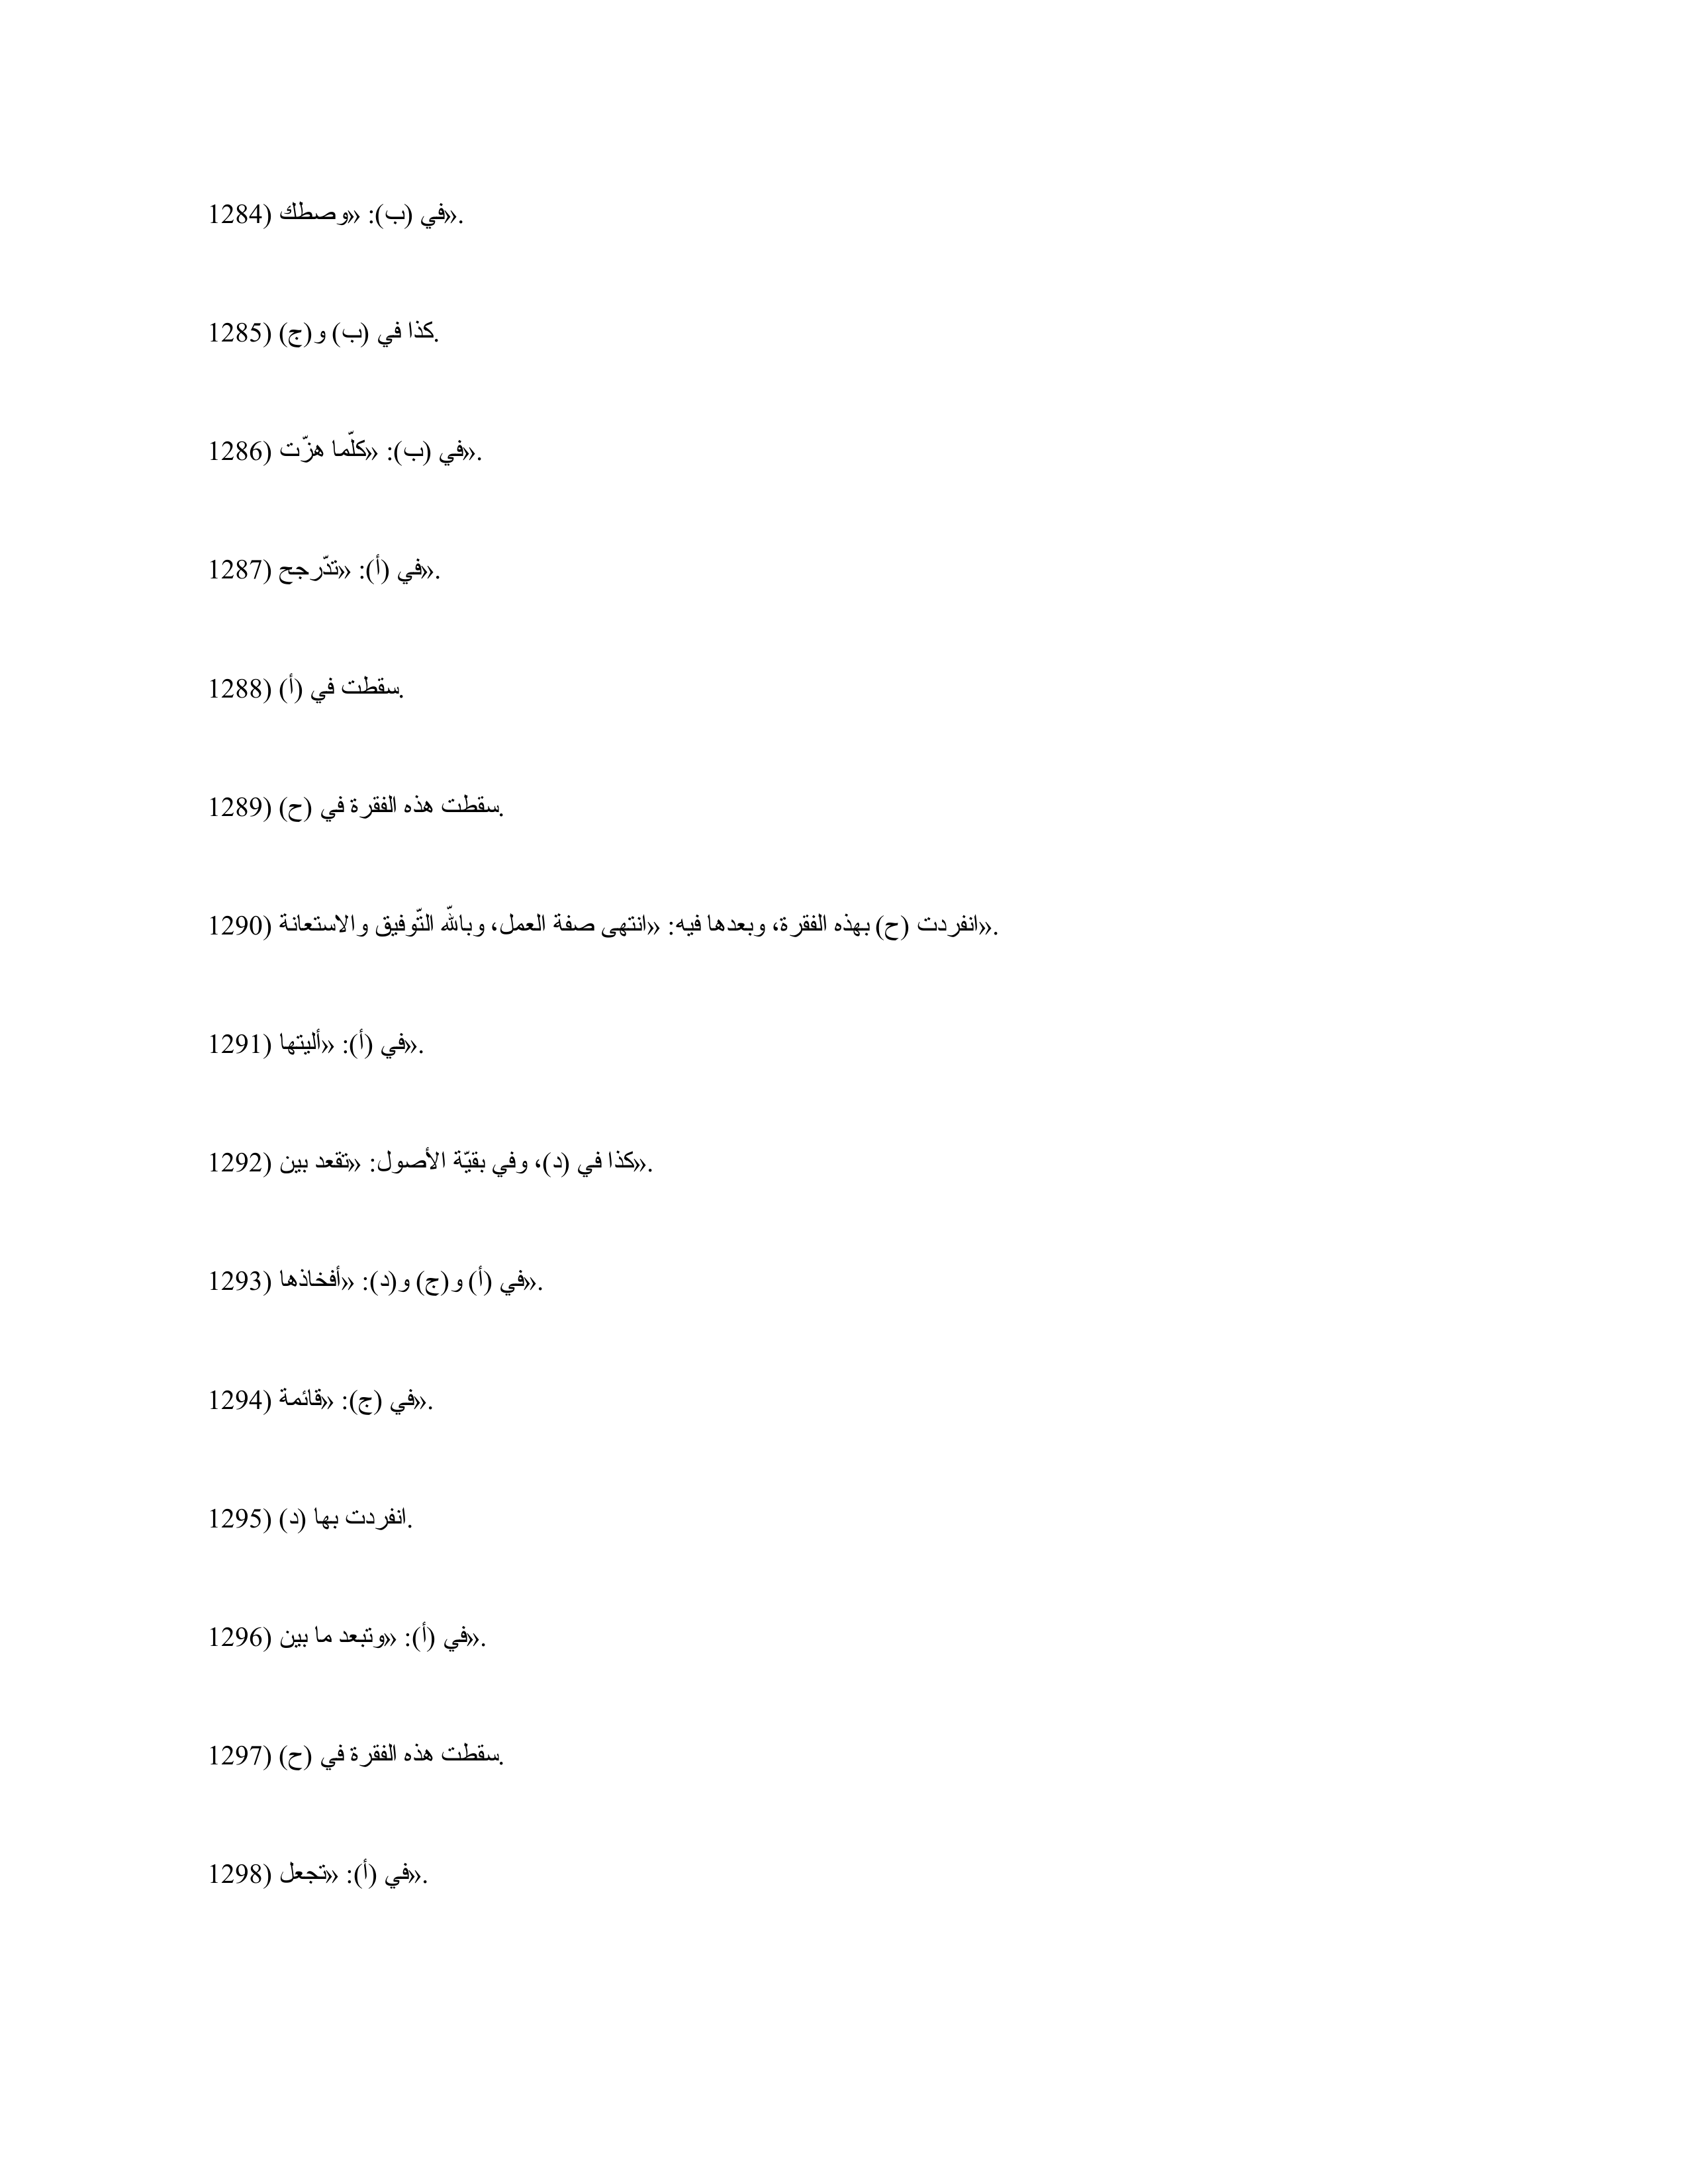 1284) في (ب): «وصطك».
1285) كذا في (ب) و(ج).
1286) في (ب): «كلّما هزّت».
1287) في (أ): «تدّرجح».
1288) سقطت في (أ).
1289) سقطت هذه الفقرة في (ح).
1290) انفردت (ح) بهذه الفقرة، وبعدها فيه: «انتهى صفة العمل، وباللّه التّوفيق والاستعانة».
1291) في (أ): «أليتها».
1292) كذا في (د)، وفي بقيّة الأصول: «تقعد بين».
1293) في (أ) و(ج) و(د): «أفخاذها».
1294) في (ج): «قائمة».
1295) انفردت بها (د).
1296) في (أ): «وتبعد ما بين».
1297) سقطت هذه الفقرة في (ح).
1298) في (أ): «تجعل».